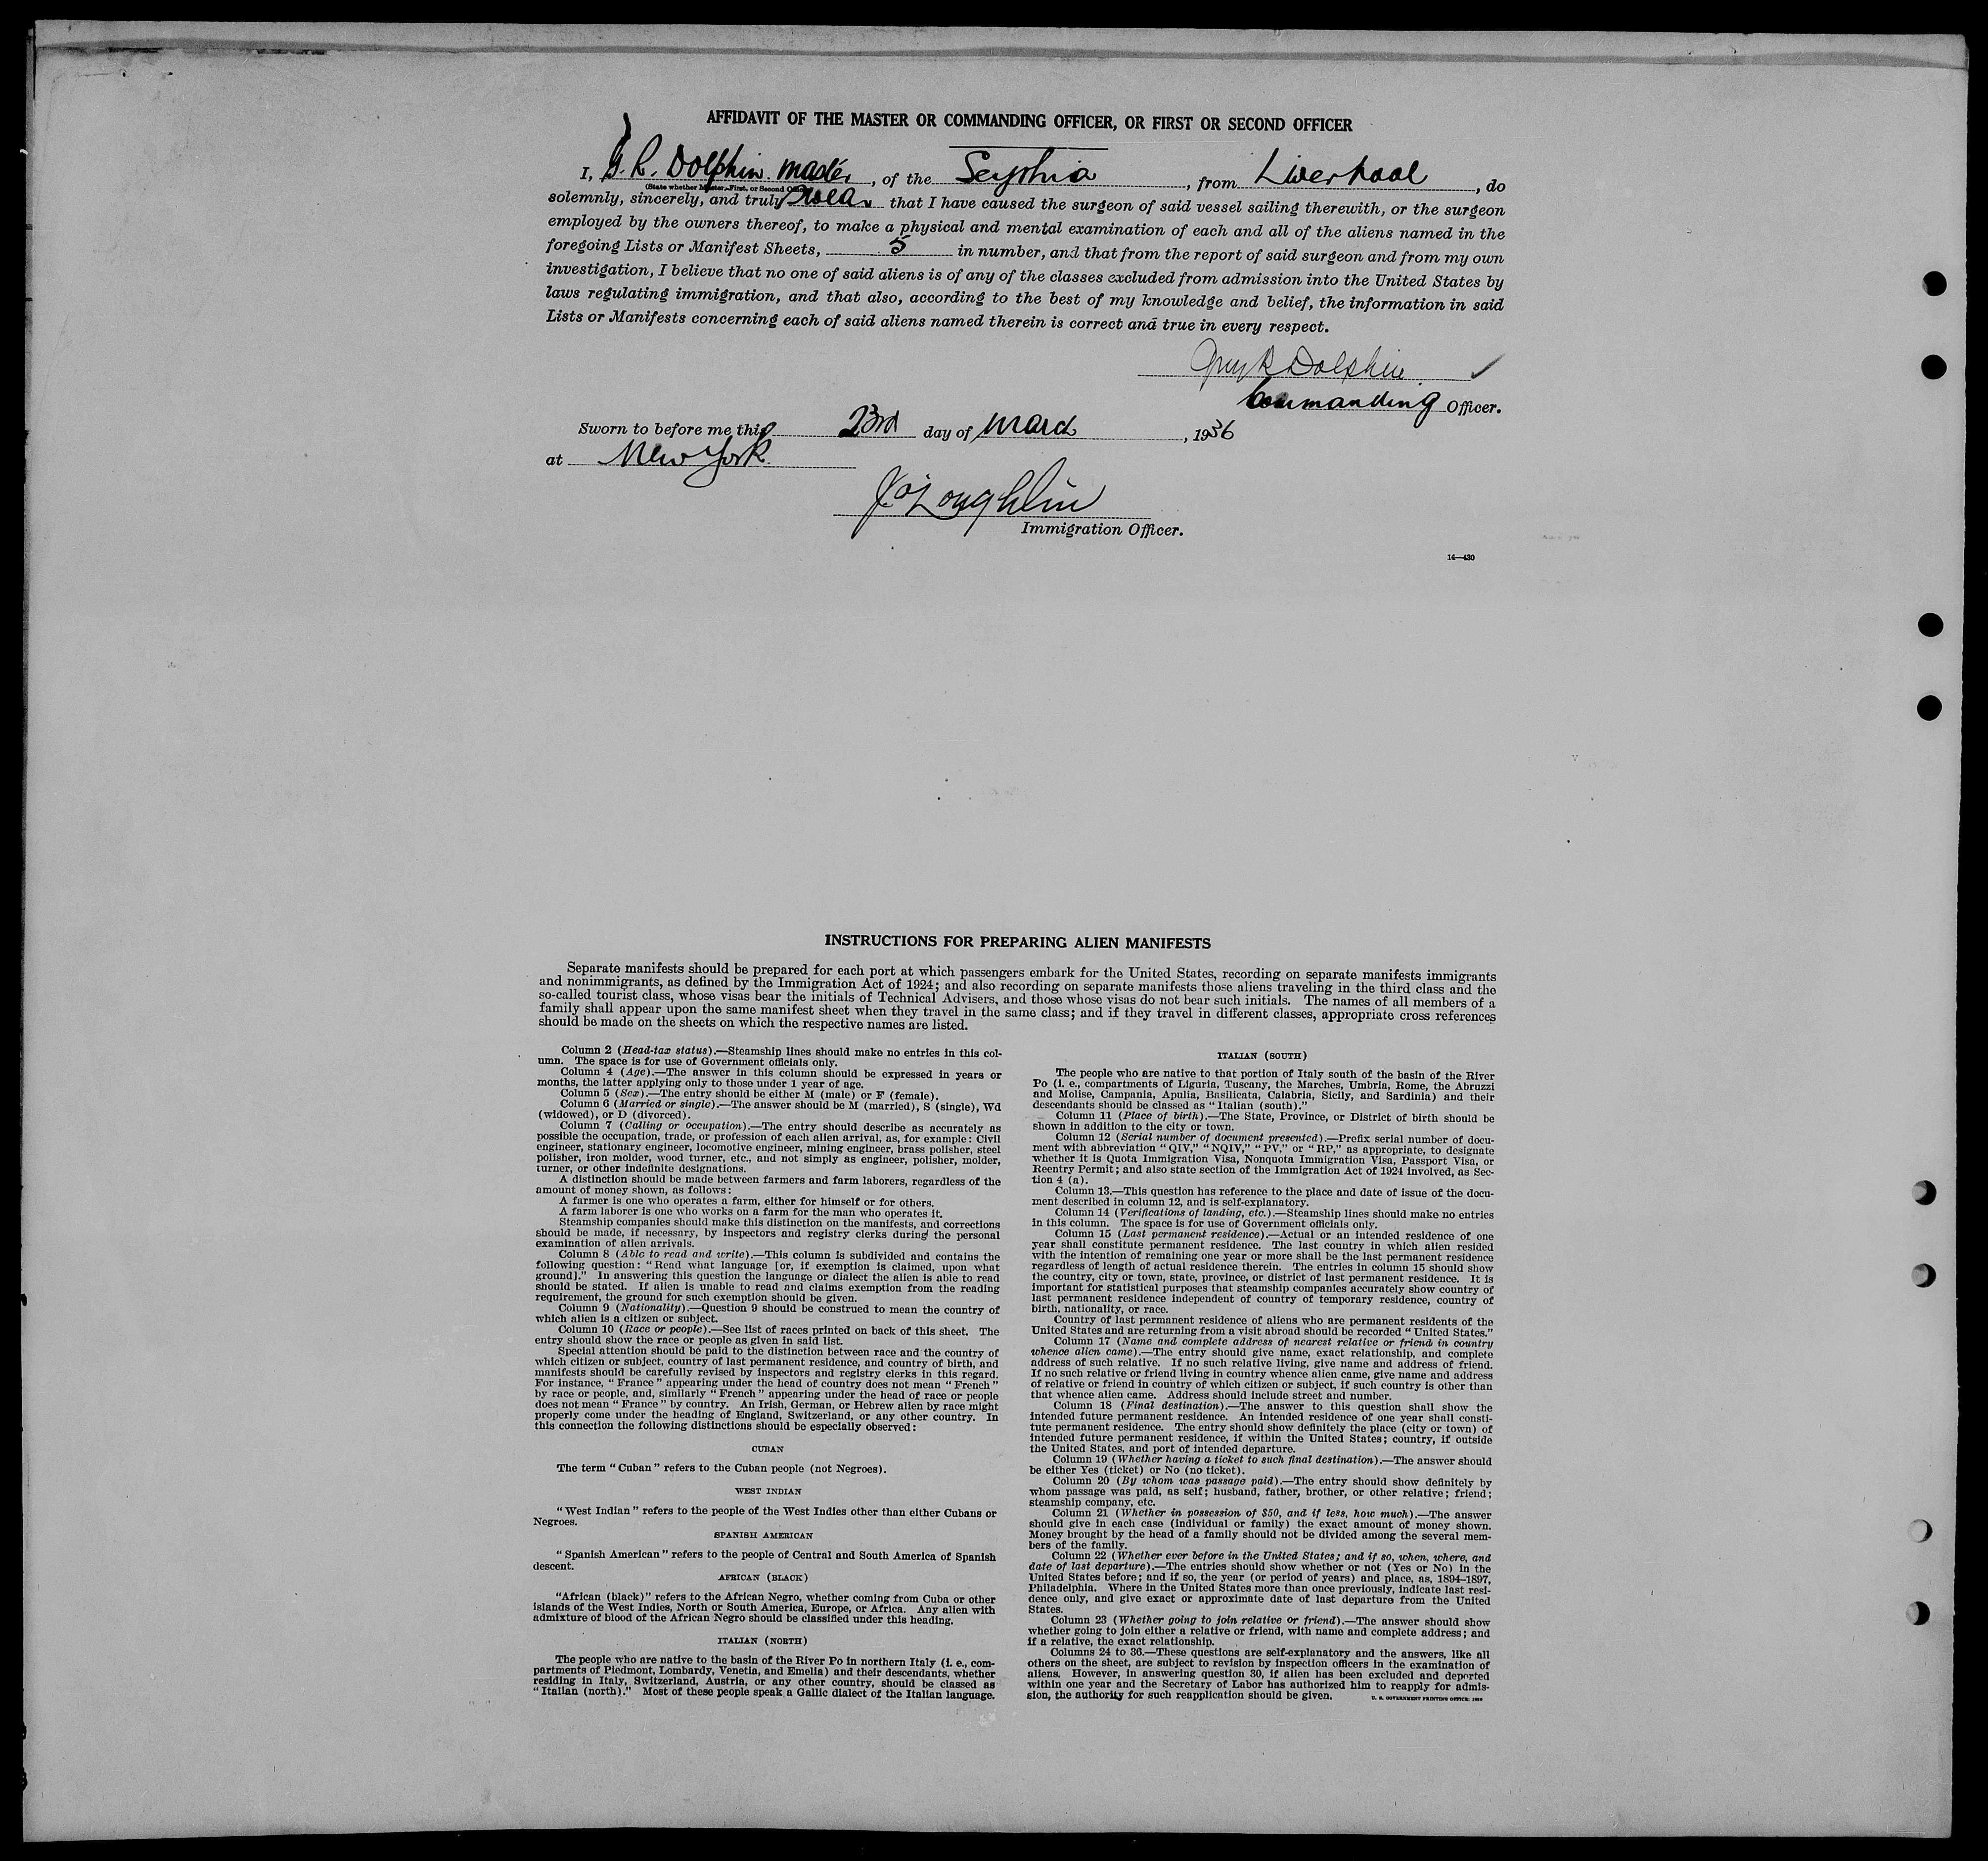 AFFIDAVIT OF THE MASTER OR COMMANDING OFFICER, OR FIRST OR SECOND OFFICER
I, G. R. Dolphin master, of the Scythia, from Liverpool, do
(State whether Master, First, or Second Officer)
solemnly, sincerely, and truly swear that I have caused the surgeon of said vessel sailing therewith, or the surgeon
employed by the owners thereof, to make a physical and mental examination of each and all of the aliens named in the
foregoing Lists or Manifest Sheets, 5 in number, and that from the report of said surgeon and from my own
investigation, I believe that no one of said aliens is of any of the classes excluded from admission into the United States by
laws regulating immigration, and that also, according to the best of my knowledge and belief, the information in said
Lists or Manifests concerning each of said aliens named therein is correct and true in every respect.
Guy R Dolphin
Commanding Officer.
Sworn to before me this 23rd day of March, 1936
at New York
J. O'Loughlin
Immigration Officer.
14—430
INSTRUCTIONS FOR PREPARING ALIEN MANIFESTS
Separate manifests should be prepared for each port at which passengers embark for the United States, recording on separate manifests immigrants
and nonimmigrants, as defined by the Immigration Act of 1924; and also recording on separate manifests those aliens traveling in the third class and the
so-called tourist class, whose visas bear the initials of Technical Advisers, and those whose visas do not bear such initials. The names of all members of a
family shall appear upon the same manifest sheet when they travel in the same class; and if they travel in different classes, appropriate cross references
should be made on the sheets on which the respective names are listed.
Column 2 (Head-tax status).—Steamship lines should make no entries in this col-
umn. The space is for use of Government officials only.
Column 4 (Age).—The answer in this column should be expressed in years or
months, the latter applying only to those under 1 year of age.
Column 5 (Sex).—The entry should be either M (male) or F (female).
Column 6 (Married or single).—The answer should be M (married), S (single), Wd
(widowed), or D (divorced).
Column 7 (Calling or occupation).—The entry should describe as accurately as
possible the occupation, trade, or profession of each alien arrival, as, for example: Civil
engineer, stationary engineer, locomotive engineer, mining engineer, brass polisher, steel
polisher, iron molder, wood turner, etc., and not simply as engineer, polisher, molder,
turner, or other indefinite designations.
A distinction should be made between farmers and farm laborers, regardless of the
amount of money shown, as follows:
A farmer is one who operates a farm, either for himself or for others.
A farm laborer is one who works on a farm for the man who operates it.
Steamship companies should make this distinction on the manifests, and corrections
should be made, if necessary, by inspectors and registry clerks during the personal
examination of alien arrivals.
Column 8 (Able to read and write).—This column is subdivided and contains the
following question: "Read what language [or, if exemption is claimed, upon what
ground]." In answering this question the language or dialect the alien is able to read
should be stated. If alien is unable to read and claims exemption from the reading
requirement, the ground for such exemption should be given.
Column 9 (Nationality).—Question 9 should be construed to mean the country of
which alien is a citizen or subject.
Column 10 (Race or people).—See list of races printed on back of this sheet. The
entry should show the race or people as given in said list.
Special attention should be paid to the distinction between race and the country of
which citizen or subject, country of last permanent residence, and country of birth, and
manifests should be carefully revised by inspectors and registry clerks in this regard.
For instance, "France" appearing under the head of country does not mean "French"
by race or people, and, similarly "French" appearing under the head of race or people
does not mean "France" by country. An Irish, German, or Hebrew alien by race might
properly come under the heading of England, Switzerland, or any other country. In
this connection the following distinctions should be especially observed:
CUBAN
The term "Cuban" refers to the Cuban people (not Negroes).
WEST INDIAN
"West Indian" refers to the people of the West Indies other than either Cubans or
Negroes.
SPANISH AMERICAN
"Spanish American" refers to the people of Central and South America of Spanish
descent.
AFRICAN (BLACK)
"African (black)" refers to the African Negro, whether coming from Cuba or other
islands of the West Indies, North or South America, Europe, or Africa. Any alien with
admixture of blood of the African Negro should be classified under this heading.
ITALIAN (NORTH)
The people who are native to the basin of the River Po in northern Italy (i. e., com-
partments of Piedmont, Lombardy, Venetia, and Emelia) and their descendants, whether
residing in Italy, Switzerland, Austria, or any other country, should be classed as
"Italian (north)." Most of these people speak a Gallic dialect of the Italian language.
ITALIAN (SOUTH)
The people who are native to that portion of Italy south of the basin of the River
Po (i. e., compartments of Liguria, Tuscany, the Marches, Umbria, Rome, the Abruzzi
and Molise, Campania, Apulia, Basilicata, Calabria, Sicily, and Sardinia) and their
descendants should be classed as "Italian (south)."
Column 11 (Place of birth).—The State, Province, or District of birth should be
shown in addition to the city or town.
Column 12 (Serial number of document presented).—Prefix serial number of docu-
ment with abbreviation "QIV," "NQIV," "PV," or "RP," as appropriate, to designate
whether it is Quota Immigration Visa, Nonquota Immigration Visa, Passport Visa, or
Reentry Permit; and also state section of the Immigration Act of 1924 involved, as Sec-
tion 4 (a).
Column 13.—This question has reference to the place and date of issue of the docu-
ment described in column 12, and is self-explanatory.
Column 14 (Verifications of landing, etc.).—Steamship lines should make no entries
in this column. The space is for use of Government officials only.
Column 15 (Last permanent residence).—Actual or an intended residence of one
year shall constitute permanent residence. The last country in which alien resided
with the intention of remaining one year or more shall be the last permanent residence
regardless of length of actual residence therein. The entries in column 15 should show
the country, city or town, state, province, or district of last permanent residence. It is
important for statistical purposes that steamship companies accurately show country of
last permanent residence independent of country of temporary residence, country of
birth, nationality, or race.
Country of last permanent residence of aliens who are permanent residents of the
United States and are returning from a visit abroad should be recorded "United States."
Column 17 (Name and complete address of nearest relative or friend in country
whence alien came).—The entry should give name, exact relationship, and complete
address of such relative. If no such relative living, give name and address of friend.
If no such relative or friend living in country whence alien came, give name and address
of relative or friend in country of which citizen or subject, if such country is other than
that whence alien came. Address should include street and number.
Column 18 (Final destination).—The answer to this question shall show the
intended future permanent residence. An intended residence of one year shall consti-
tute permanent residence. The entry should show definitely the place (city or town) of
intended future permanent residence, if within the United States; country, if outside
the United States, and port of intended departure.
Column 19 (Whether having a ticket to such final destination).—The answer should
be either Yes (ticket) or No (no ticket).
Column 20 (By whom was passage paid).—The entry should show definitely by
whom passage was paid, as self; husband, father, brother, or other relative; friend;
steamship company, etc.
Column 21 (Whether in possession of $50, and if less, how much).—The answer
should give in each case (individual or family) the exact amount of money shown.
Money brought by the head of a family should not be divided among the several mem-
bers of the family.
Column 22 (Whether ever before in the United States; and if so, when, where, and
date of last departure).—The entries should show whether or not (Yes or No) in the
United States before; and if so, the year (or period of years) and place, as, 1894–1897,
Philadelphia. Where in the United States more than once previously, indicate last resi-
dence only, and give exact or approximate date of last departure from the United
States.
Column 23 (Whether going to join relative or friend).—The answer should show
whether going to join either a relative or friend, with name and complete address; and
if a relative, the exact relationship.
Columns 24 to 36.—These questions are self-explanatory and the answers, like all
others on the sheet, are subject to revision by inspection officers in the examination of
aliens. However, in answering question 30, if alien has been excluded and deported
within one year and the Secretary of Labor has authorized him to reapply for admis-
sion, the authority for such reapplication should be given.
U. S. GOVERNMENT PRINTING OFFICE: